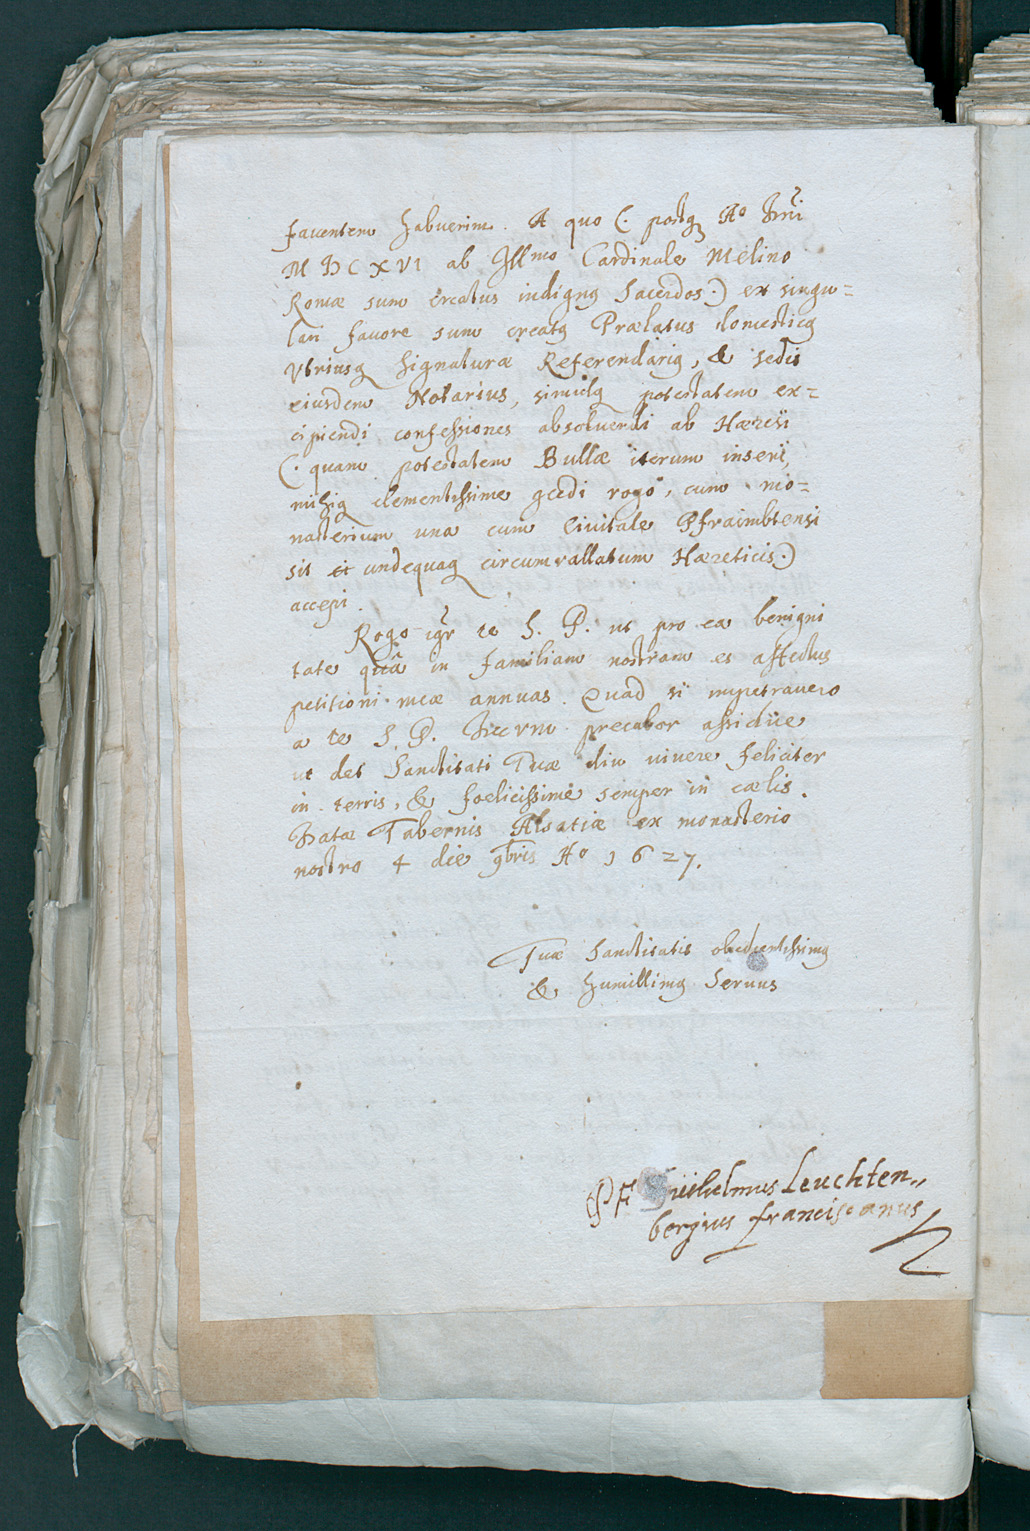 faventem habuerim. A quo (: postq̃ Aº Dñi
MDCXVI ab Illmo Cardinale Melino
Romæ sum creatus indignꝰ Sacerdos:) ex singu=
lari favore sum creatꝰ Prælatus domesticꝰ
Vtriusq̃ Signaturæ Referendariꝰ, & sedis
eiusdem Notarius, simulq̃ potestatem ex=
cipiendi confessiones absolvendi ab Hæresi
(: quam potestatem Bullæ iterum inseri,
mihiq̃ clementissime ꝯcedi rogo, cum mo=
nasterium una cum Civitate Pfraimbtensi
sit et undequaq̃ circumvallatum Hæreticis:)
accepi.
Rogo igr̃ te S. P. ut pro ea benigni
tate quâ in familiam nostram es affectus
petitioni meæ annuas. Quod si impetravero
a te S. P. Deum precabor assidue
ut det Sanctitati Tuæ diu vivere feliciter
in terris, & foelicissimè semper in cælis.
Datæ Tabernis Alsatiæ ex monasterio
nostro 4 die 9bris Aº 1627.
Tuæ Sanctitatis obedientissimꝰ
& humillimꝰ Servus
F Guilielmus Leuchten,,
bergius franciscanus